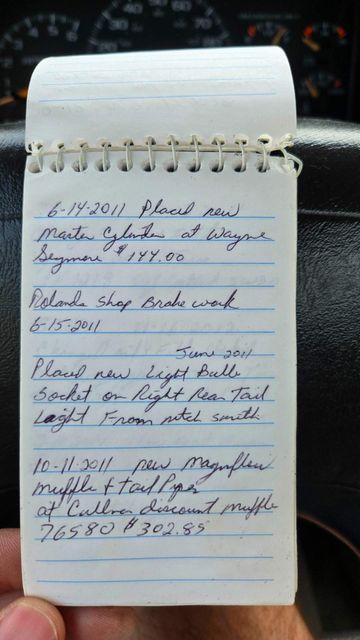 6-14-2011 Placed new
Master Cylinder at Wayne
Seymore $144.00
Rolands shop Brake work
6-15-2011
June 2011
Placed new Light Bulb
Socket on Right Rear Tail
Light From mitch smith
10-11-2011 new Magnaflow
muffle & tail Pipes
at Cullman discount muffle
76580 $302.85